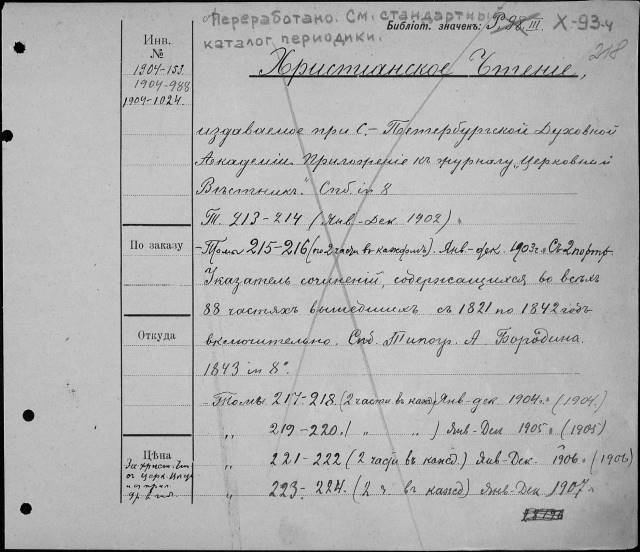 Переработано. См. стандартный
каталог периодики.
Библіот. значекъ: Х-93-4
218
Инв.
№
1904-153
1904-988
1904-1024
Христіанское Чтеніе,
издаваемое при С.-Петербургской Духовной
Академіи. Приложеніе къ журналу „Церковный
Вѣстникъ". Спб. in 8
Т. 213-214 (Янв-Дек 1902)
По заказу
Томы 215-216 (по 2 части въ каждомъ). Янв.-дек. 1903г. Съ 2 портр.
Указатель сочиненій, содержащихся во всѣхъ
88 частяхъ вышедшихъ съ 1821 по 1842 годъ
Откуда
включительно. Спб. Типогр. А Бородина.
1843 in 8°.
Томы 217-218 (2 части въ кажд) Янв-дек 1904 (1904)
„ 219-220 ( „ „ ) Янв-Дек 1905 (1905)
Цѣна
„ 221-222 (2 части въ кажд.) Янв-Дек. 1906 (1906)
„ 223-224. (2 ч. въ кажд) Янв-Дек 1907